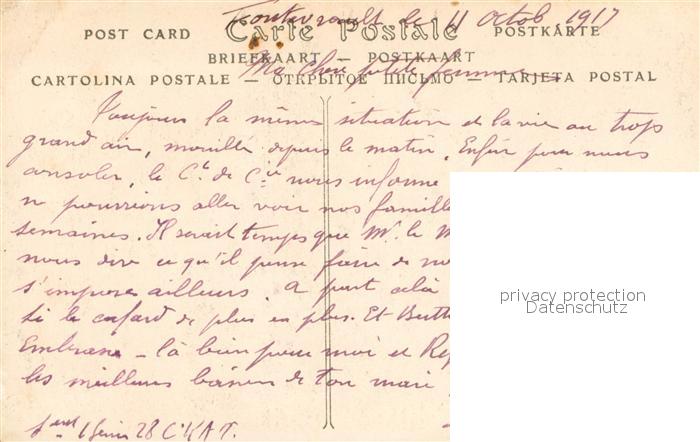 Fontevrault le 11 Octob 1917
Carte Postale
POST CARD POSTKARTE
BRIEFKAART — POSTKAART
Ma Chère petite femme
CARTOLINA POSTALE — ОТКРЫТОЕ ПИСЬМО — TARJETA POSTAL
Toujours la même situation et la vie au trop
grand air, mouillé depuis le matin. Enfin pour nous
consoler, le Ct. de Cie nous informe
n pourrions aller voir nos famille
semaines. Il serait temps que Mr. le M
nous dire ce qu'il pense faire de no
s'impose ailleurs. A part cela
le cafard de plus en plus. Et
Embrasse - là bien pour moi et
les meilleurs baisers de ton mari
privacy protection
Datenschutz